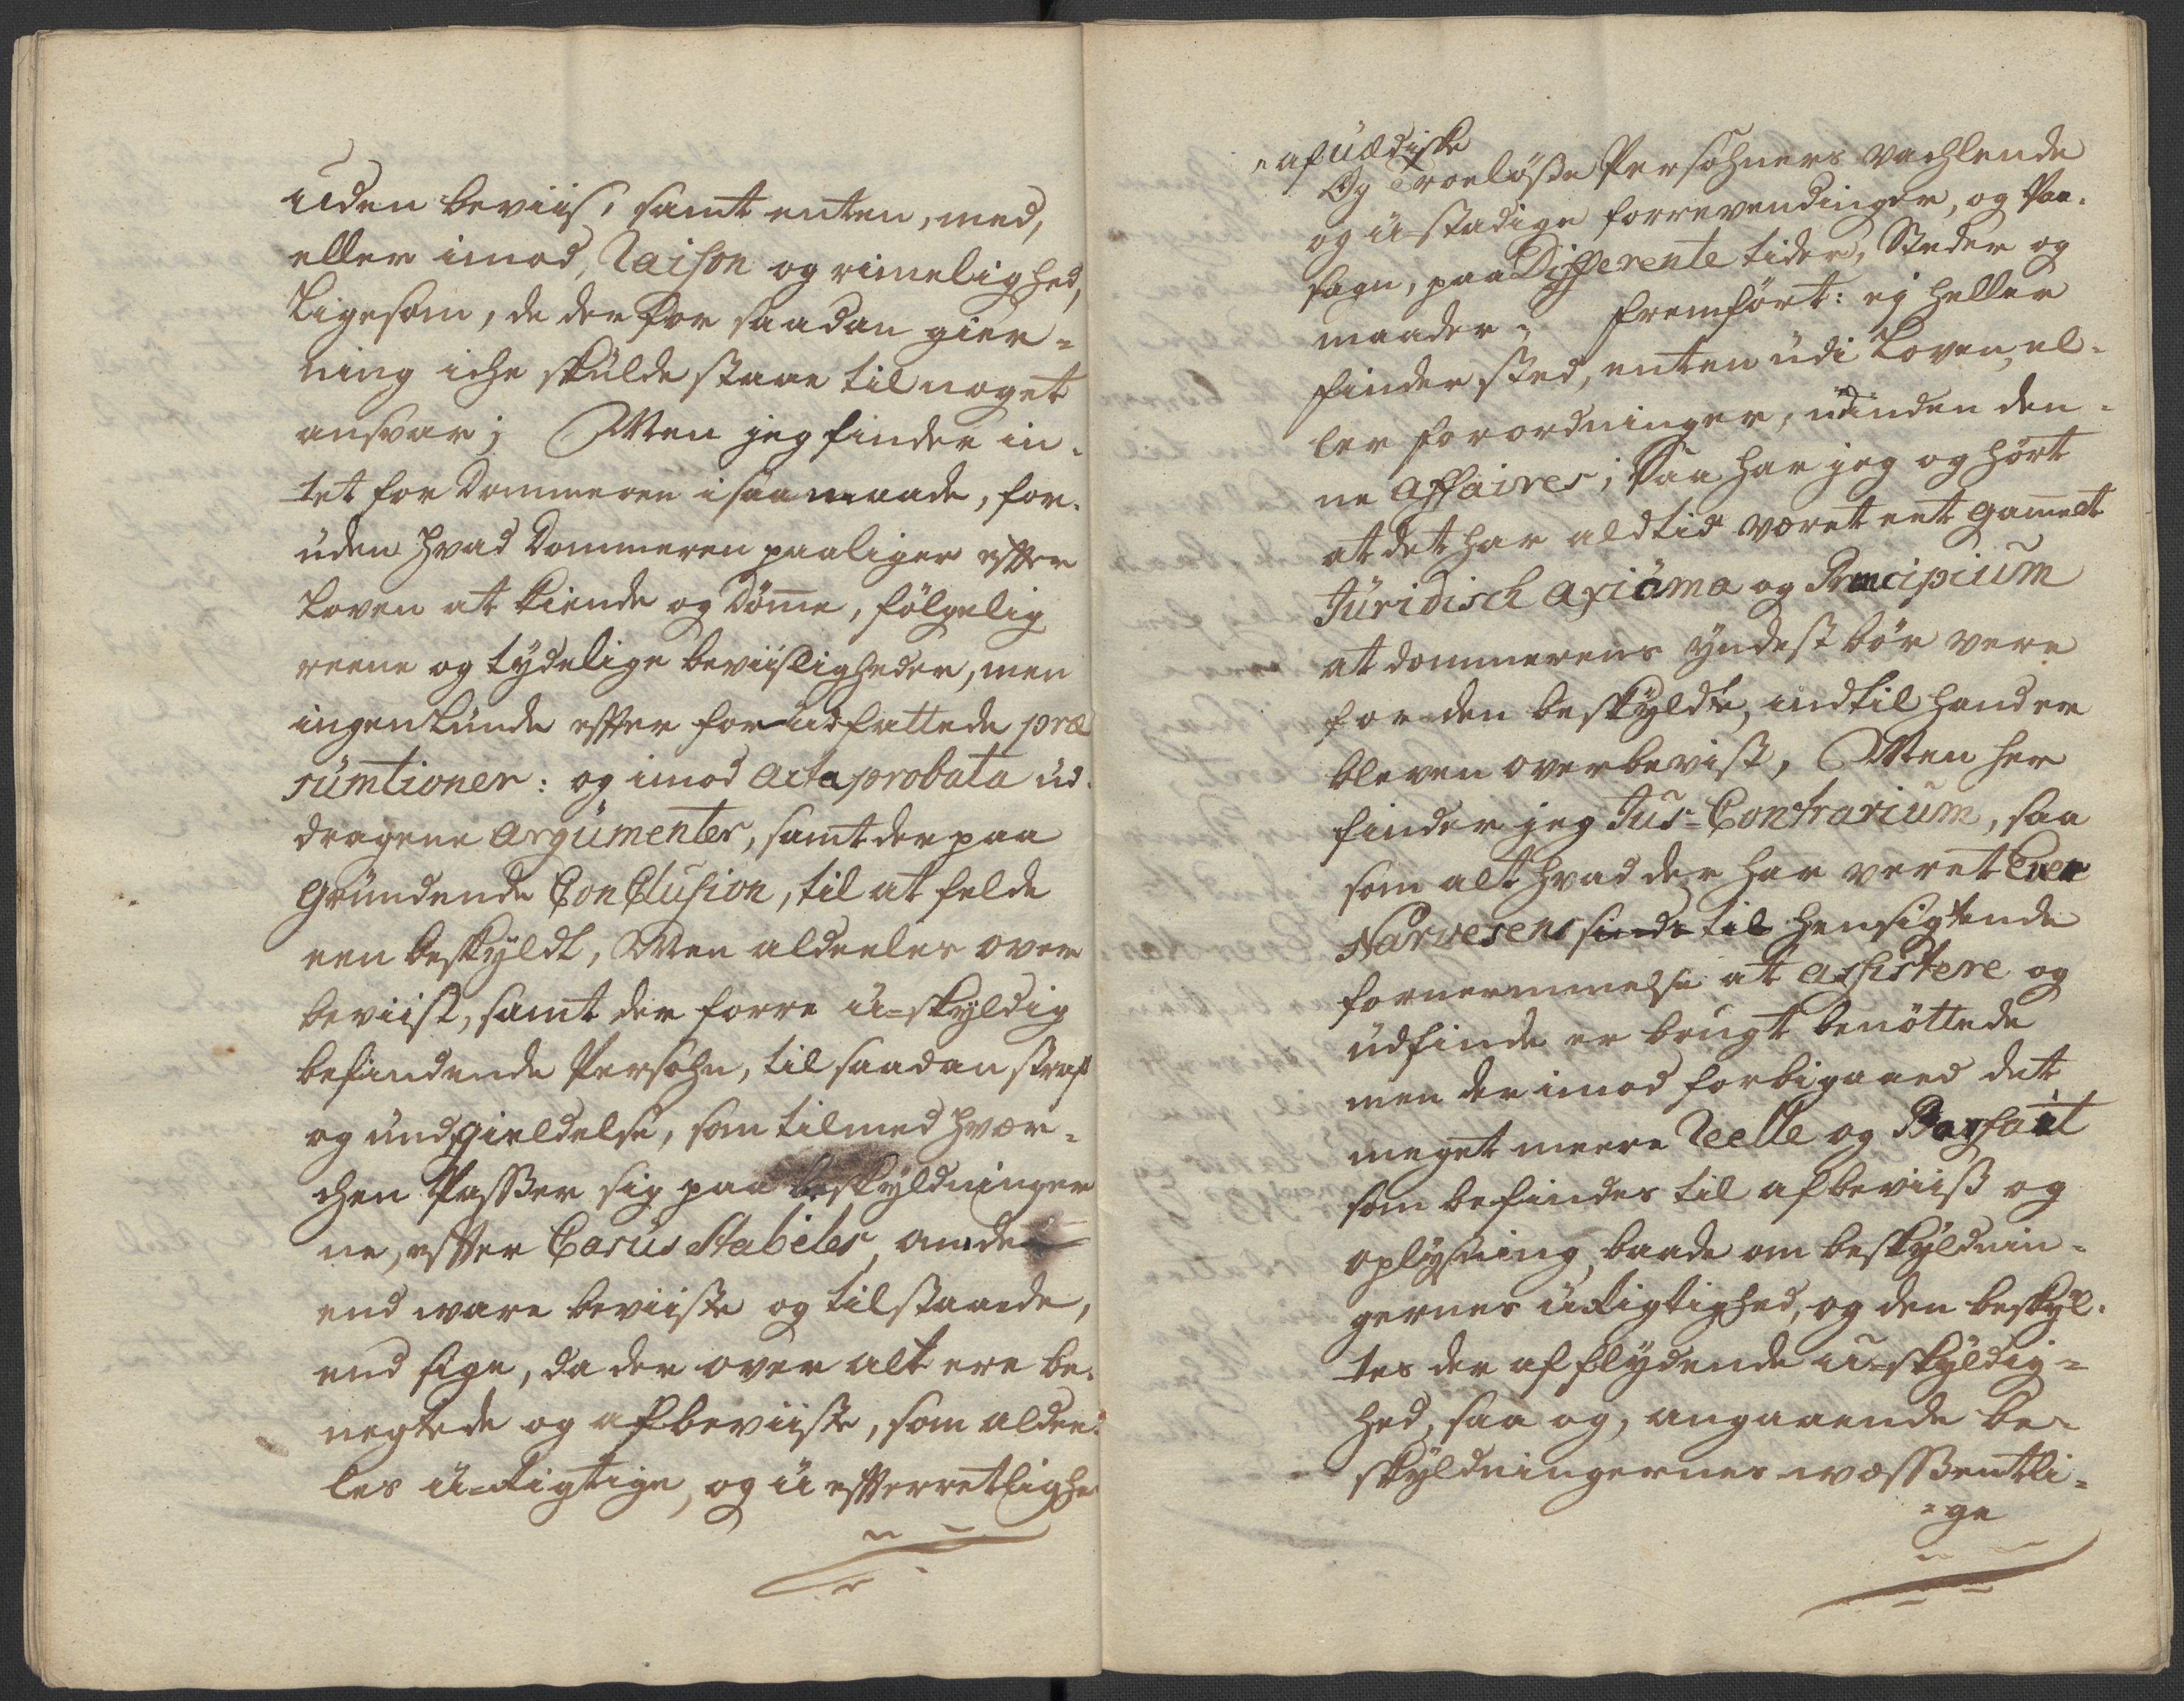 uden beviis, samt enten, med,
eller imod, Raison og rimelighed,
Ligesom, de der for saadan gier-
ning iche skulde staae til noget
ansvar; Men jeg finder in-
tet for Dommeren i saa maade, for-
uden hvad Dommeren paaligger efter
Loven at kiende og Dømme, følgelig
reene og tydelige beviisligheder, men
ingenlunde efter for udfattede præ
sumtioner: og imod acta probata ud-
dragene argumenter, samt der paa
Grundende Conclusion, til at felde
een beskyldt, Men aldeeles over
beviist, samt der forre u-skyldig
befindende Persohn, til saadan straf
og undgieldelse, som tilmed hver-
chen Passer sig paa beskyldninger
ne, efter Casus Stabeles, anden
end ware beviiste og tilstaaede,
end sige, da der over alt ere be-
negtede og afbeviiste, som aldee-
les u-Rigtige, og u efterretlighe
"af uædiske
Og Troeløsse Persohners vachlende
og u-stadige forrevendinger, og Paa-
sagn, paa Differente tider, Steder og
maader; fremført: ej heller
finder sted, enten udi Loven, el-
ler forordninger, udinden den-
ne affairer; Saa har jeg og hørt
at det har aldtid været eet gammelt
Juridisch axioma og Principium
at dommerens Yndest bør vere
for den beskyldte, indtil hand er
bleven overbevist, Men her
finder jeg Jus-Contrarium, saa
som alt hvad der har veret Even
Narvesens sinde til hensigtende
fornemmelse at assistere og
udfinde er brugt benøttede
men der imod forbigaaed det
meget meere Reelle og Parfait
som befindes til afbeviiss og
oplysning, baade om beskyldnin-
gernes uRigtighed, og den beskyl-
tes der af flydende u-skyldig-
hed, saa og, angaaende be-
skyldningernes wæssentli-
=ge